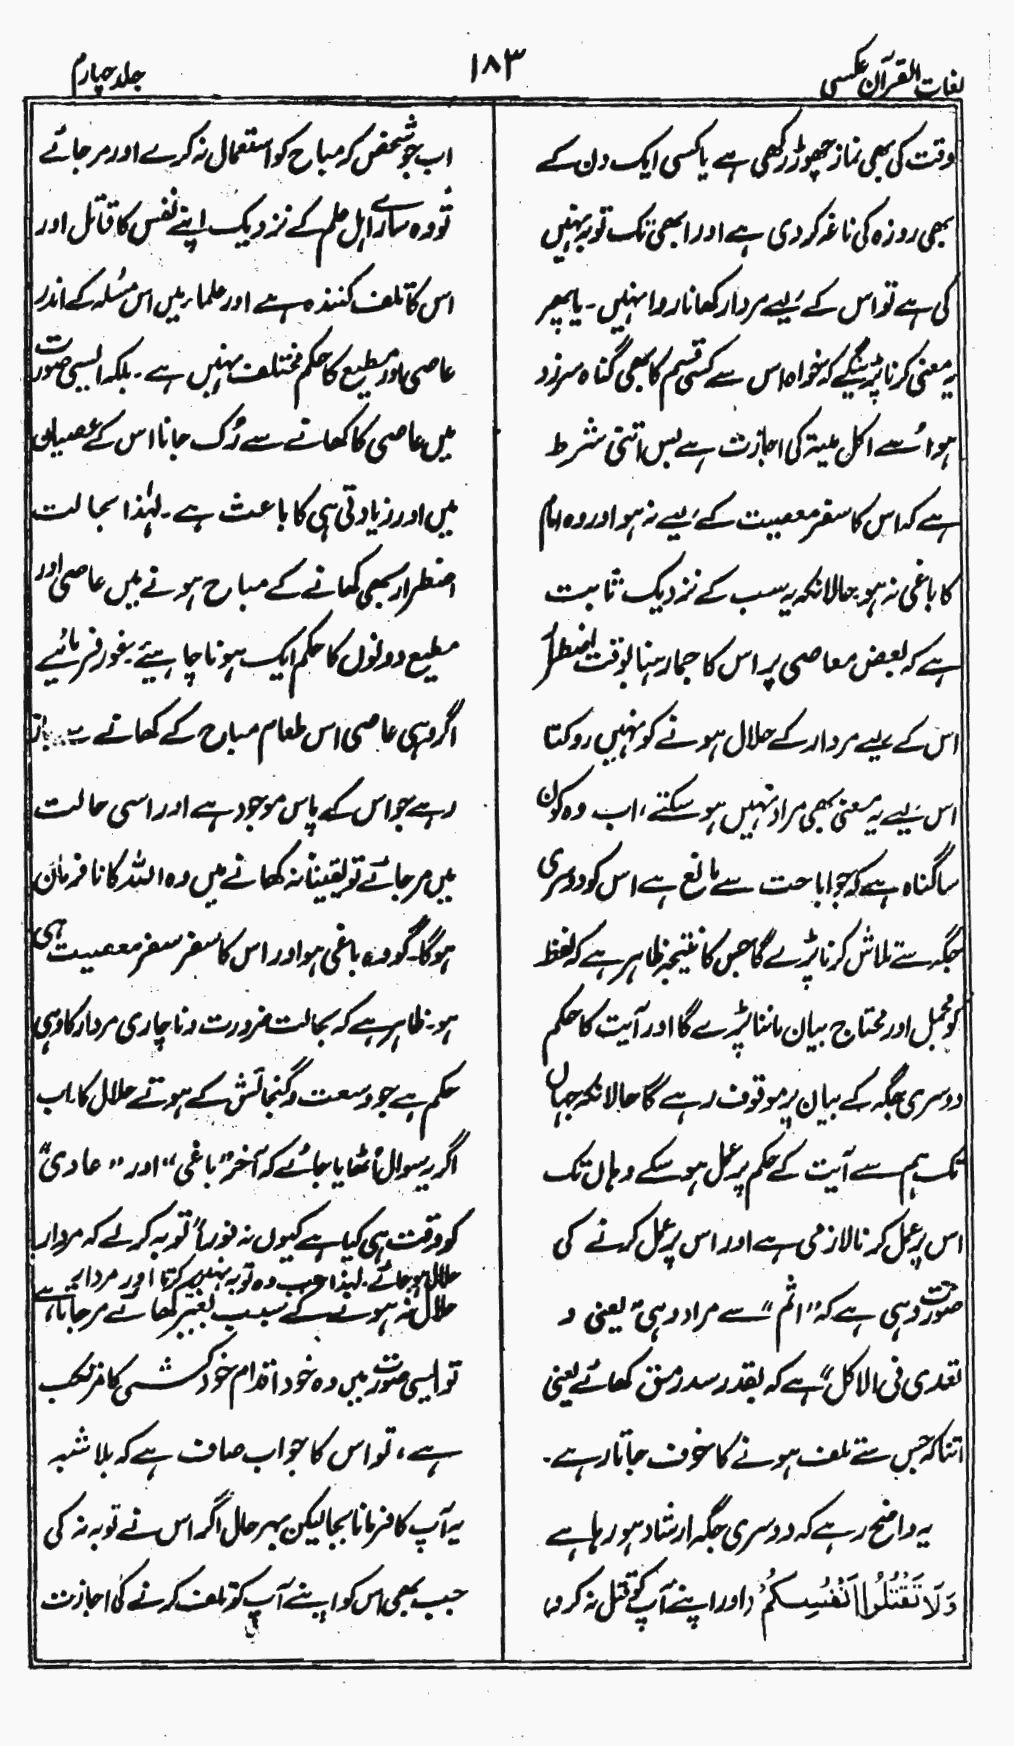 لغات القرآن عکسی
۱۸۳
جلد چہارم
وقت کی بھی نماز چھوڑ رکھی ہے یا کسی ایک دن کے
بھی روزہ کی ناغہ کر دی ہے اور ابھی تک توبہ نہیں
کی ہے تو اس کے لیے مردار کھانا روا نہیں ۔ یا پھر
یہ معنی کرنا پڑینگے کہ خواہ اس سے کسی قسم کا بھی گناہ سرزد
ہوا اُسے اکل میتۃ کی اجازت ہے بس اتنی شرط
ہے کہ اس کا سفر معصیت کے لیے نہ ہو اور وہ امام
کا باغی نہ ہو حالانکہ یہ سب کے نزدیک ثابت
ہے کہ بعض معاصی پر اس کا جما رہنا بوقت اضطرار
اس کے لیے مردار کے حلال ہونے کو نہیں روکتا
اس لیے یہ معنی بھی مراد نہیں ہو سکتے، اب وہ کون
سا گناہ ہے کہ جو اباحت سے مانع ہے اس کو دوسری
جگہ سے تلاش کرنا پڑے گا جس کا نتیجہ ظاہر ہے کہ لفظ
کو مجمل اور محتاج بیان ماننا پڑے گا اور آیت کا حکم
دوسری جگہ کے بیان پر موقوف رہے گا حالانکہ جہاں
تک ہم سے آیت کے حکم پر عمل ہو سکے وہاں تک
اس پر عمل کرنا لازمی ہے اور اس پر عمل کرنے کی
صورت وہی ہے کہ ”اثم“ سے مراد وہی ”یعنی و
تعدی فی الاکل“ ہے کہ بقدر سد رمق کھائے یعنی
اتنا کہ جس سے تلف ہونے کا خوف جاتا رہے ۔
یہ واضح رہے کہ دوسری جگہ ارشاد ہو رہا ہے
وَلَا تَقْتُلُوا اَنْفُسَكُمْ (اور اپنے آپ کو قتل نہ کرو)
اب جو شخص کہ مباح کو استعمال نہ کرے اور مر جائے
تو وہ سارے اہل علم کے نزدیک اپنے نفس کا قاتل اور
اس کا تلف کنندہ ہے اور علماء میں اس مسئلہ کے اندر
عاصی اور مطیع کا حکم مختلف نہیں ہے ۔ بلکہ ایسی صورت
میں عاصی کا کھانے سے رُک جانا اس کے عصیان
میں اور زیادتی ہی کا باعث ہے ۔ لہٰذا بحالت
اضطرار بھی کھانے کے مباح ہونے میں عاصی اور
مطیع دونوں کا حکم ایک ہونا چاہیئے ۔ غور فرمائیے
اگر وہی عاصی اس طعام مباح کے کھانے سے باز
رہے جو اس کے پاس موجود ہے اور اسی حالت
میں مر جائے تو یقیناً نہ کھانے میں وہ اللہ کا نافرمان
ہوگا ۔ گو وہ باغی ہو اور اس کا سفر سفر معصیت ہی
ہو ۔ ظاہر ہے کہ بحالت ضرورت و ناچاری مردار کا وہی
حکم ہے جو وسعت و گنجائش کے ہوتے حلال کا ۔ اب
اگر یہ سوال اُٹھایا جائے کہ آخر ”باغی“ اور ”عادی“
کو دقت ہی کیا ہے کیوں نہ فوراً توبہ کر لے کہ مردار
حلال ہو جائے ۔ لہٰذا جب وہ توبہ نہیں کرتا اور مردار
حلال نہ ہونے کے سبب بغیر کھائے مر جاتا ہے،
تو ایسی صورت میں وہ خود اقدام خودکشی کا مرتکب
ہے، تو اس کا جواب صاف ہے کہ بلا شبہ
یہ آپ کا فرمانا بجا لیکن بہرحال اگر اس نے توبہ نہ کی
جب بھی اس کو اپنے آپ کو تلف کرنے کی اجازت